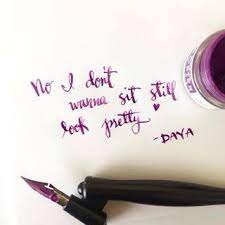 No I dont
wanna sit still
look pretty ♥
-DAYA